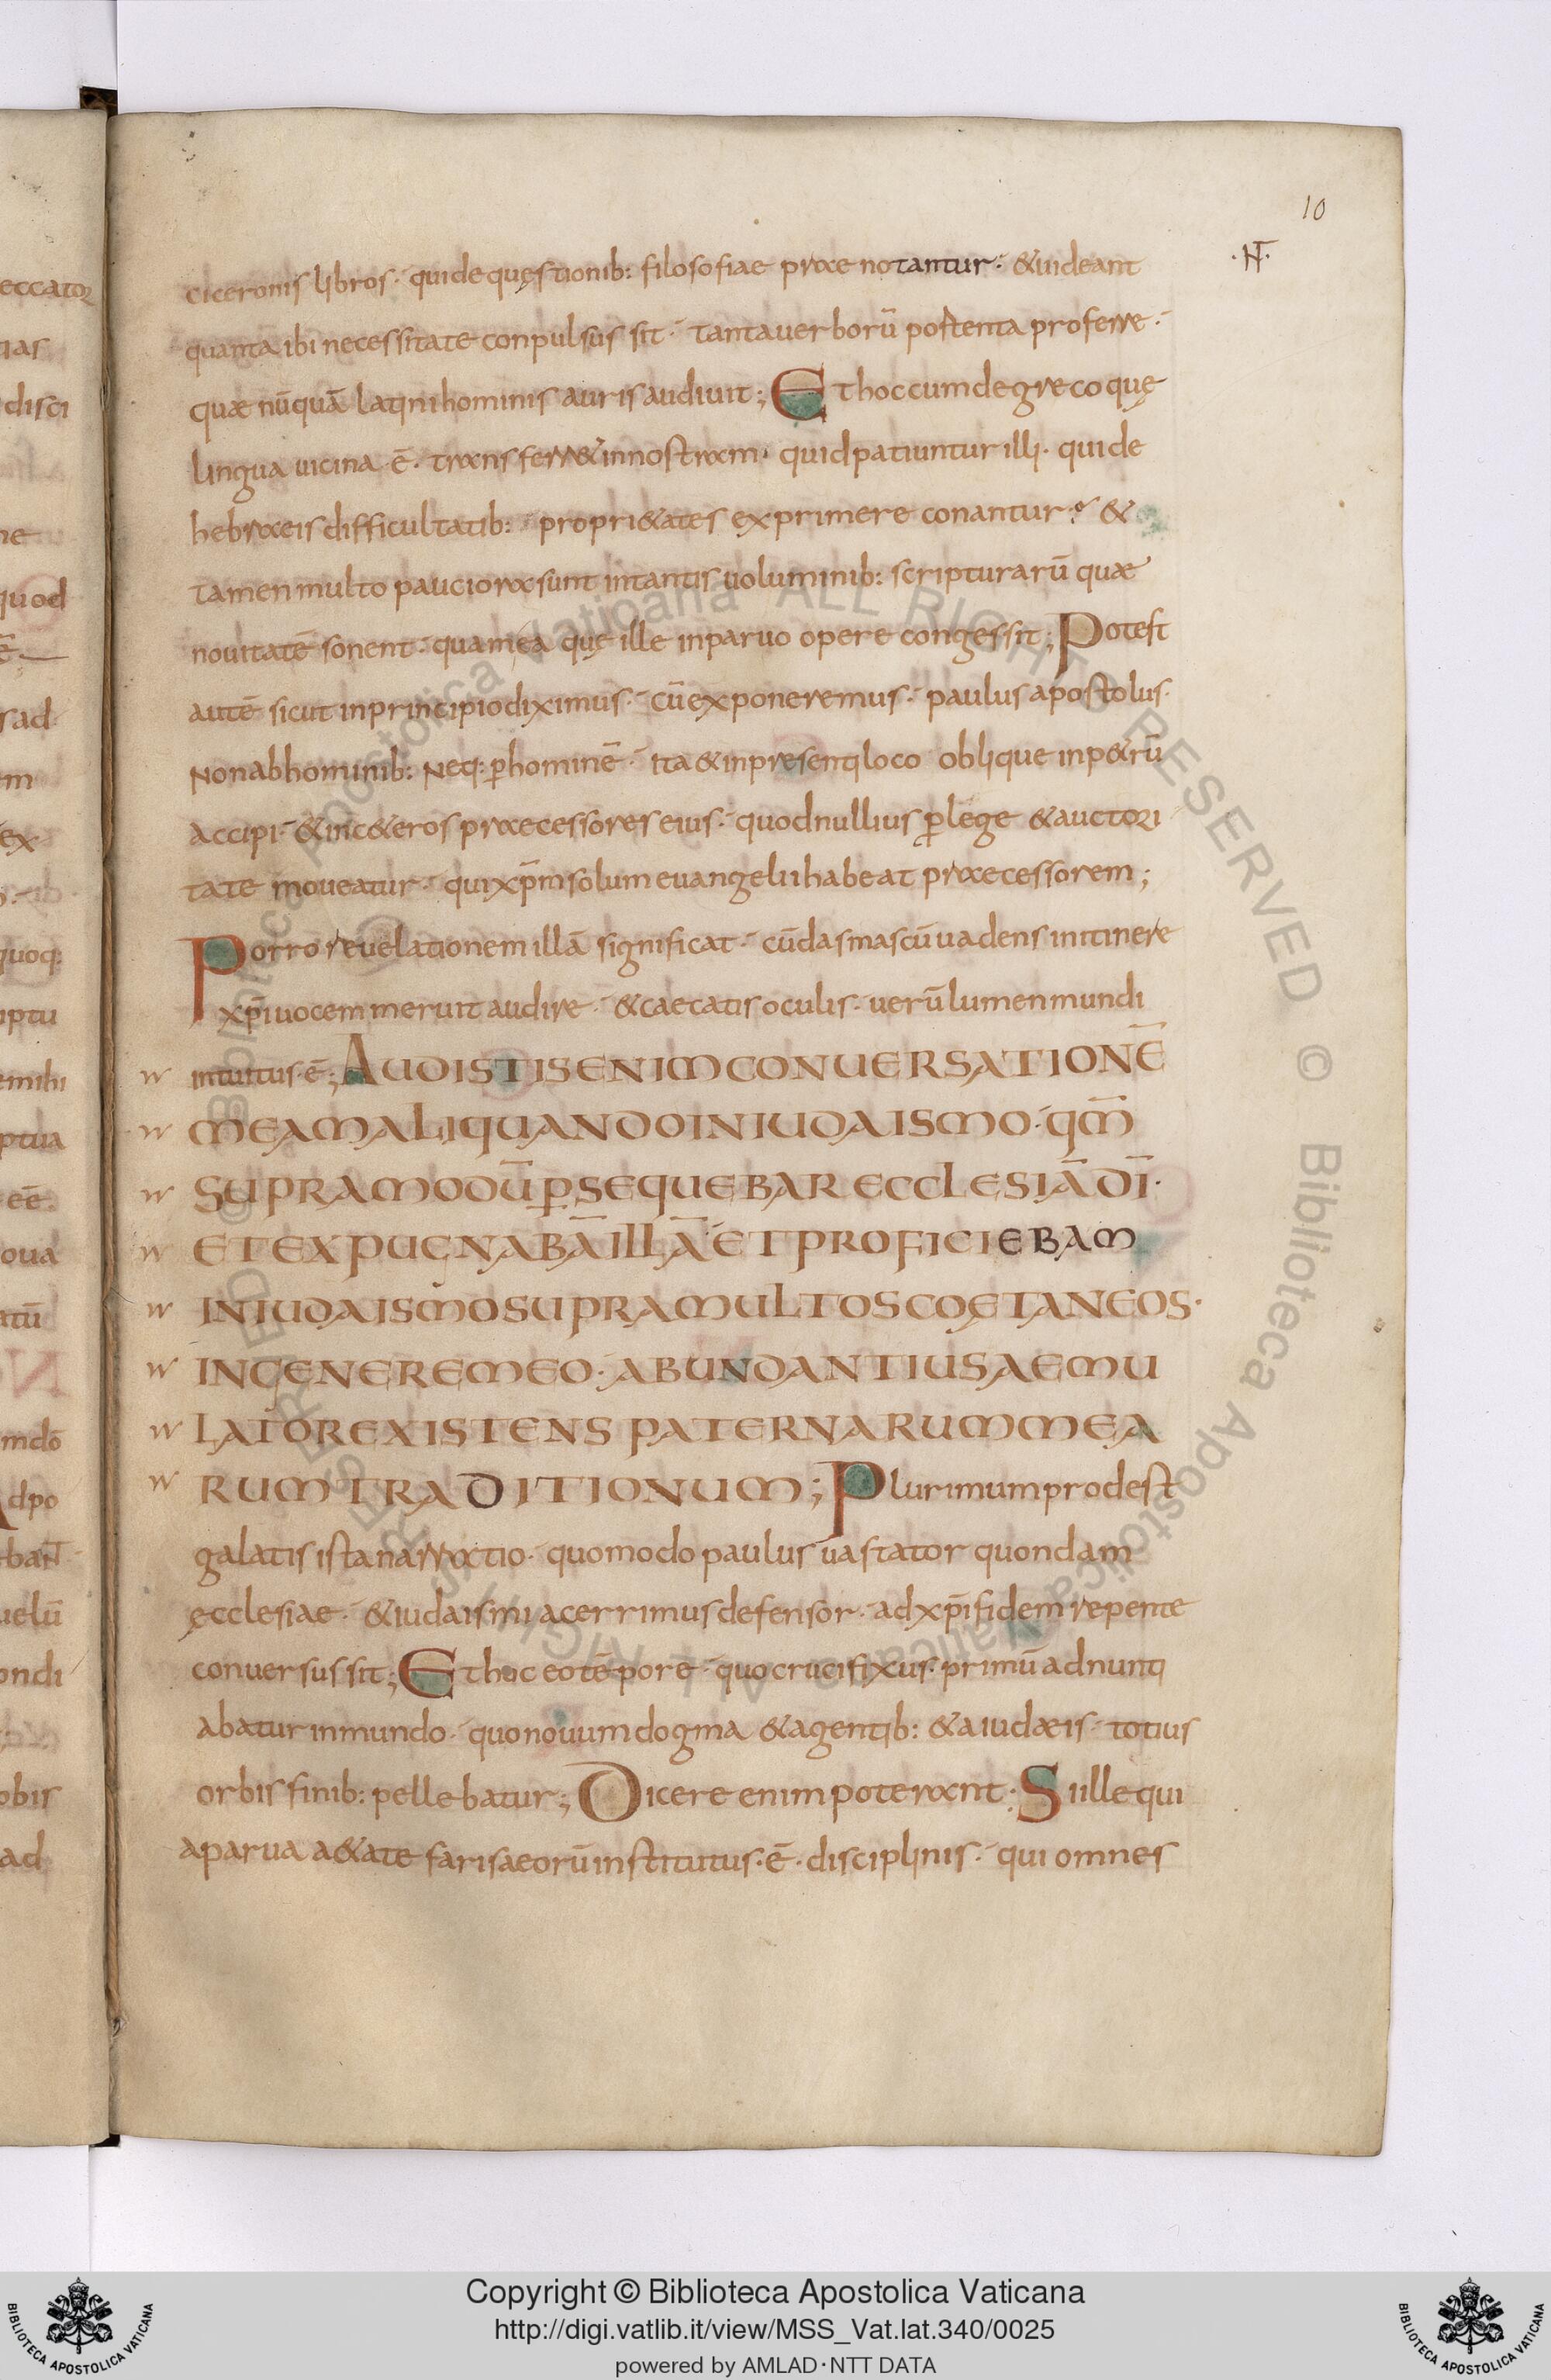 10
·NT·
ciceronis libros· qui de quęstionib: filosofiae praenotantur· & uideant
quanta ibi necessitate conpulsus sit· tanta uerborū postenta proferre·
quae nūquā latini hominis auris audiuit; Et hoc cum de greco quę
lingua uicina ·ē· transferr& in nostram· quid patiuntur illi· qui de
hebraeis difficultatib: propri&ates exprimere conantur? &
tamen multo pauciora sunt in tantis uoluminib: scripturarū quae
nouitatē sonent· quam ea quę ille in paruo opere congessit; Potest
autē sicut in principio diximus· cū exponeremus· paulus apostolus·
Non ab hominib: Neq: ꝑ hominē· ita & in presenti loco oblique in p&rū
accipi· & in c&eros praecessores eius· quod nullius ꝑ lege & auctori
tate moueatur· qui xp̄m solum euangelii habeat praecessorem;
Porro reuelationem illā significat· cū damascū uadens in itinere
xp̄i uocem meruit audire· & caecatis oculis· uerū lumen mundi
intuitus·ē; AUDISTIS ENIM CONUERSATIONĒ
MEAM ALIQUANDO IN IUDAISMO· QM̄
SUPRA MODŪ ꝑSEQUEBAR ECCLESIĀ DĪ·
ET EXPUGNABĀ ILLĀ· ET PROFICIEBAM
IN IUDAISMO SUPRA MULTOS COĘTANEOS·
IN GENERE MEO· ABUNDANTIUS AEMU
LATOR EXISTENS PATERNARUM MEA
RUM TRADITIONUM; Plurimum prodest
galatis ista narratio· quomodo paulus uastator quondam
ęcclesiae· & iudaismi acerrimus defensor· ad xp̄i fidem repente
conuersus sit; Et hoc eo tēpore· quo crucifixus· primū adnunti
abatur in mundo· quo nouum dogma & a gentib: & a iudaeis· totius
orbis finib: pellebatur; Dicere enim poterant· Si ille qui
a parua a&ate farisaeorū institutus·ē· disciplinis· qui omnes
Copyright © Biblioteca Apostolica Vaticana
http://digi.vatlib.it/view/MSS_Vat.lat.340/0025
powered by AMLAD·NTT DATA